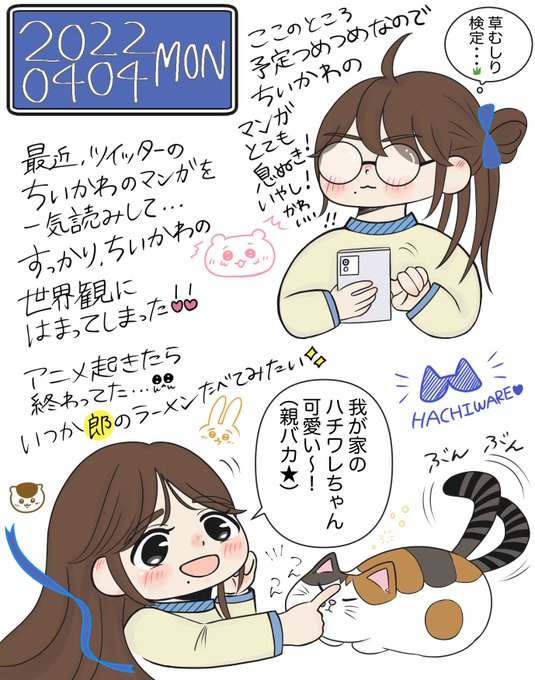 2022
0404 MON
ここのところ
予定つめつめなので
ちいかわの
マンガ
とても
息ぬき!
いやし!
かわいい!!
草むしり
検定…
最近、ツイッターの
ちいかわのマンガを
一気読みして…
すっかり、ちいかわの
世界観に
はまってしまった!!
アニメ起きたら
終わってた…
いつか郎のラーメンたべてみたい
HACHIWARE
我が家の
ハチワレちゃん
可愛い〜!
(親バカ★)
ぶん ぶん
つん
つん